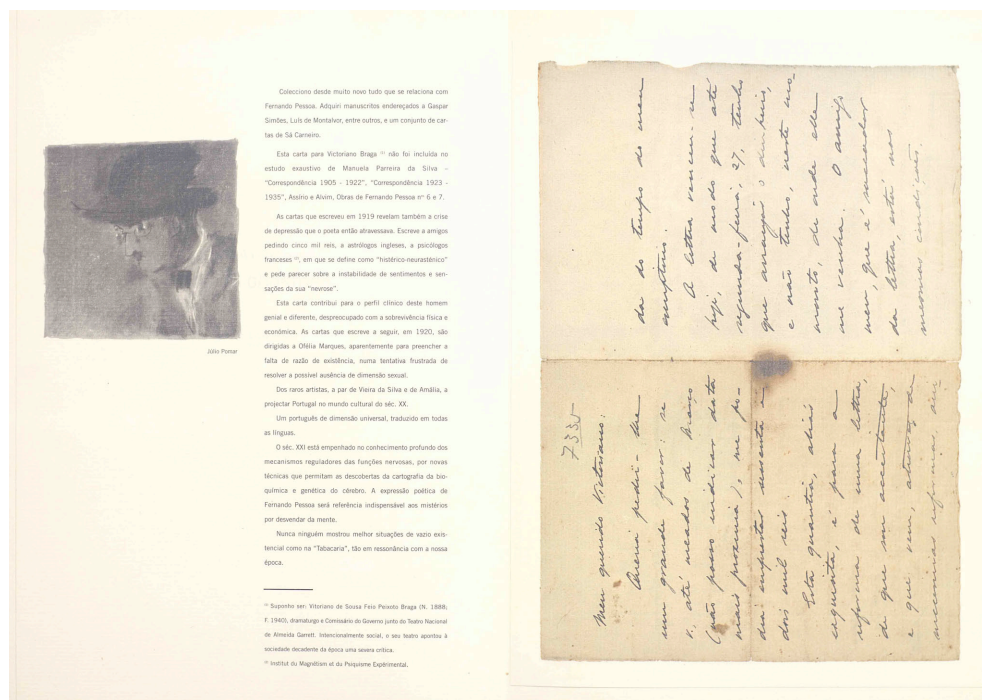 Colecciono desde muito novo tudo que se relaciona com
Fernando Pessoa. Adquiri manuscritos endereçados a Gaspar
Simões, Luís de Montalvor, entre outros, e um conjunto de car-
tas de Sá Carneiro.
Esta carta para Victoriano Braga (1) não foi incluída no
estudo exaustivo de Manuela Parreira da Silva –
"Correspondência 1905 - 1922", "Correspondência 1923 -
1935", Assírio e Alvim, Obras de Fernando Pessoa nos 6 e 7.
As cartas que escreveu em 1919 revelam também a crise
de depressão que o poeta então atravessava. Escreve a amigos
pedindo cinco mil reis, a astrólogos ingleses, a psicólogos
franceses (2), em que se define como "histérico-neurasténico"
e pede parecer sobre a instabilidade de sentimentos e sen-
sações da sua "nevrose".
Esta carta contribui para o perfil clínico deste homem
genial e diferente, despreocupado com a sobrevivência física e
económica. As cartas que escreve a seguir, em 1920, são
dirigidas a Ofélia Marques, aparentemente para preencher a
falta de razão de existência, numa tentativa frustrada de
resolver a possível ausência de dimensão sexual.
Dos raros artistas, a par de Vieira da Silva e de Amália, a
projectar Portugal no mundo cultural do séc. XX.
Um português de dimensão universal, traduzido em todas
as línguas.
O séc. XXI está empenhado no conhecimento profundo dos
mecanismos reguladores das funções nervosas, por novas
técnicas que permitam as descobertas da cartografia da bio-
química e genética do cérebro. A expressão poética de
Fernando Pessoa será referência indispensável aos mistérios
por desvendar da mente.
Nunca ninguém mostrou melhor situações de vazio exis-
tencial como na "Tabacaria", tão em ressonância com a nossa
época.
Júlio Pomar
(1) Suponho ser: Vitoriano de Sousa Feio Peixoto Braga (N. 1888;
F. 1940), dramaturgo e Comissário do Governo junto do Teatro Nacional
de Almeida Garrett. Intencionalmente social, o seu teatro apontou à
sociedade decadente da época uma severa crítica.
(2) Institut du Magnétism et du Psiquisme Expérimental.
7335
Meu querido Victoriano:
Queria pedir-lhe
um grande favor: se
v. até meados de Março
(não posso indicar data
mais proxima), me po-
dia emprestar sessenta e
dois mil reis.
Esta quantia, aliás
exquisita, é para a
reforma de uma lettra,
de que sou acceitante,
e que vem, atravez de
successivas reformas, ain-
da do tempo do meu
A lettra vencem-se
hoje, de modo que até
segunda-feira, 27, tenho
que arranjar o dinheiro,
e não tenho, neste mo-
mento, de onde elle
me venha. O amigo
meu, que é saccador
da lettra, está nas
mesmas condições.